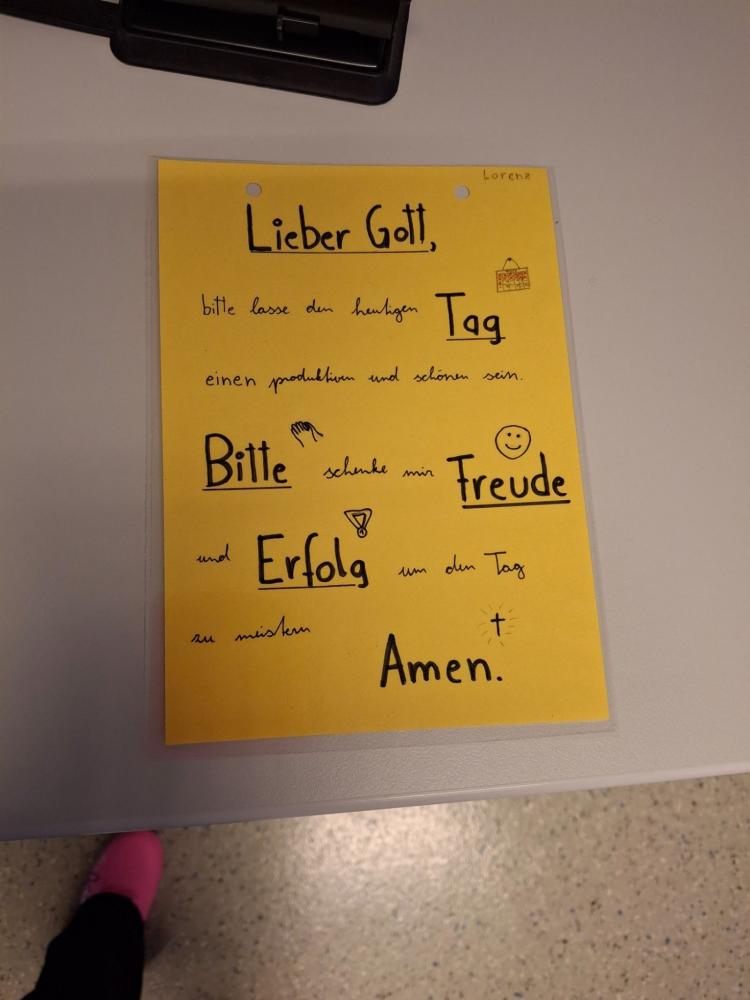 Lorenz
Lieber Gott,
bitte lasse den heutigen Tag
einen produktiven und schönen sein.
Bitte schenke mir Freude
und Erfolg um den Tag
zu meistern
Amen.